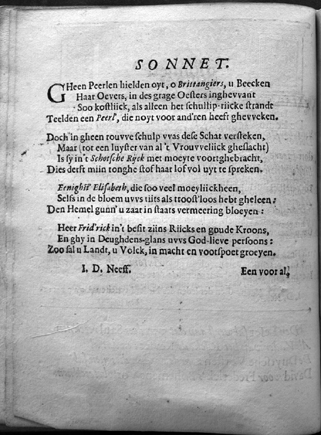 SONNET.
GHeen Peerlen hielden oyt, o Brittangiers, u Beecken
Haar Oevers, in des grage Oesters inghevvant
Soo kostliick, als alleen het schullip-riicke strandt
Teelden een Peerl, die noyt voor and'ren heeft ghevveken.
Doch in gheen rouvve schulp vvas dese Schat versteken,
Maar (tot een luyster van al 't Vrouvveliick gheslacht)
Is sy in't Schotsche Ryck met moeyte voortghebracht,
Dies derft miin tonghe stof haar lof vol uyt ghespreken.
Ernighste Elisabeth, die soo veel moeyliickheen,
Selfs in de bloem uvvs tiits als troost'loos hebt gheleen:
Den Hemel gunn' u zaar in staats vermeering bloeyen:
Heer Fridrick in't besit ziins Riicks en goude Kroons,
En ghy in Deughdens-glans uvvs God-lieve persoons:
Zoo sal u Landt, u Volck, in macht en voorspoet groeyen.
I. D. Neess.
Een voor al.